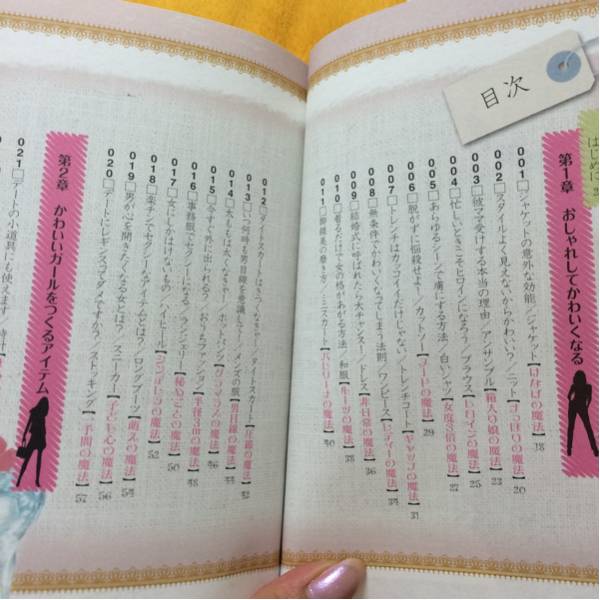 目次
はじめに 2
第1章 おしゃれしてかわいくなる
001□ジャケットの意外な効能／ジャケット【けなげの魔法】18
002□スタイルよく見えないからかわいい？／ニット【すっぽりの魔法】20
003□彼ママ受けする本当の理由／アンサンブル【箱入り娘の魔法】23
004□忙しいときこそヒロインになろう／ブラウス【ヒロインの魔法】25
005□あらゆるシーンで虜にする方法／白いシャツ【女度3倍の魔法】27
006□脱がずに悩殺せよ！／カットソー【コードの魔法】29
007□トレンチはカッコイイだけじゃない／トレンチコート【ギャップの魔法】31
008□無条件でかわいくなってしまう法則／ワンピース【レディーの魔法】
009□結婚式に呼ばれたら大チャンス！／ドレス【非日常の魔法】36
010□着るだけで女の格があがる方法／和服【ルーツの魔法】38
011□脚線美の磨き方／ミニスカート【バレリーナの魔法】40
012□タイトスカートはきつくなきゃ／タイトスカート【圧縮の魔法】42
013□いつ何時も男目線を意識して！／メンズの服【男目線の魔法】44
014□太ももは太くなきゃ！／ホットパンツ【の魔法】46
015□今すぐ外に出られる？／おうちファッション【半径3mの魔法】48
016□事務服でセクシーになる／ランジェリー【秘めごとの魔法】50
017□女にしかはけないもの／ハイヒール【の魔法】52
018□楽チンでセクシーなアイテムとは？／ロングブーツ【萌えの魔法】54
019□男が心を開いたくなる女とは？／スニーカー【子ども心の魔法】56
020□デートにレギンスってダメですか？／ストッキング【一手間の魔法】57
第2章 かわいいガールをつくるアイテム
021□デートの小道具にも使えます／時計【